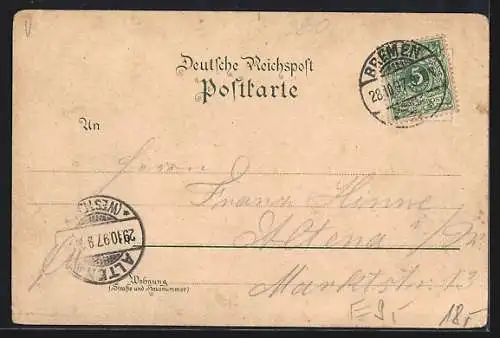 BREMEN
28.10.97
5
Deutsche Reichspost
Postkarte
An
Herrn
Franz Hinne
Altena i/W.
Marktstr. 13
Wohnung
(Straße und Hausnummer)
ALTENA
(WESTF.)
29.10.97.8
18,-